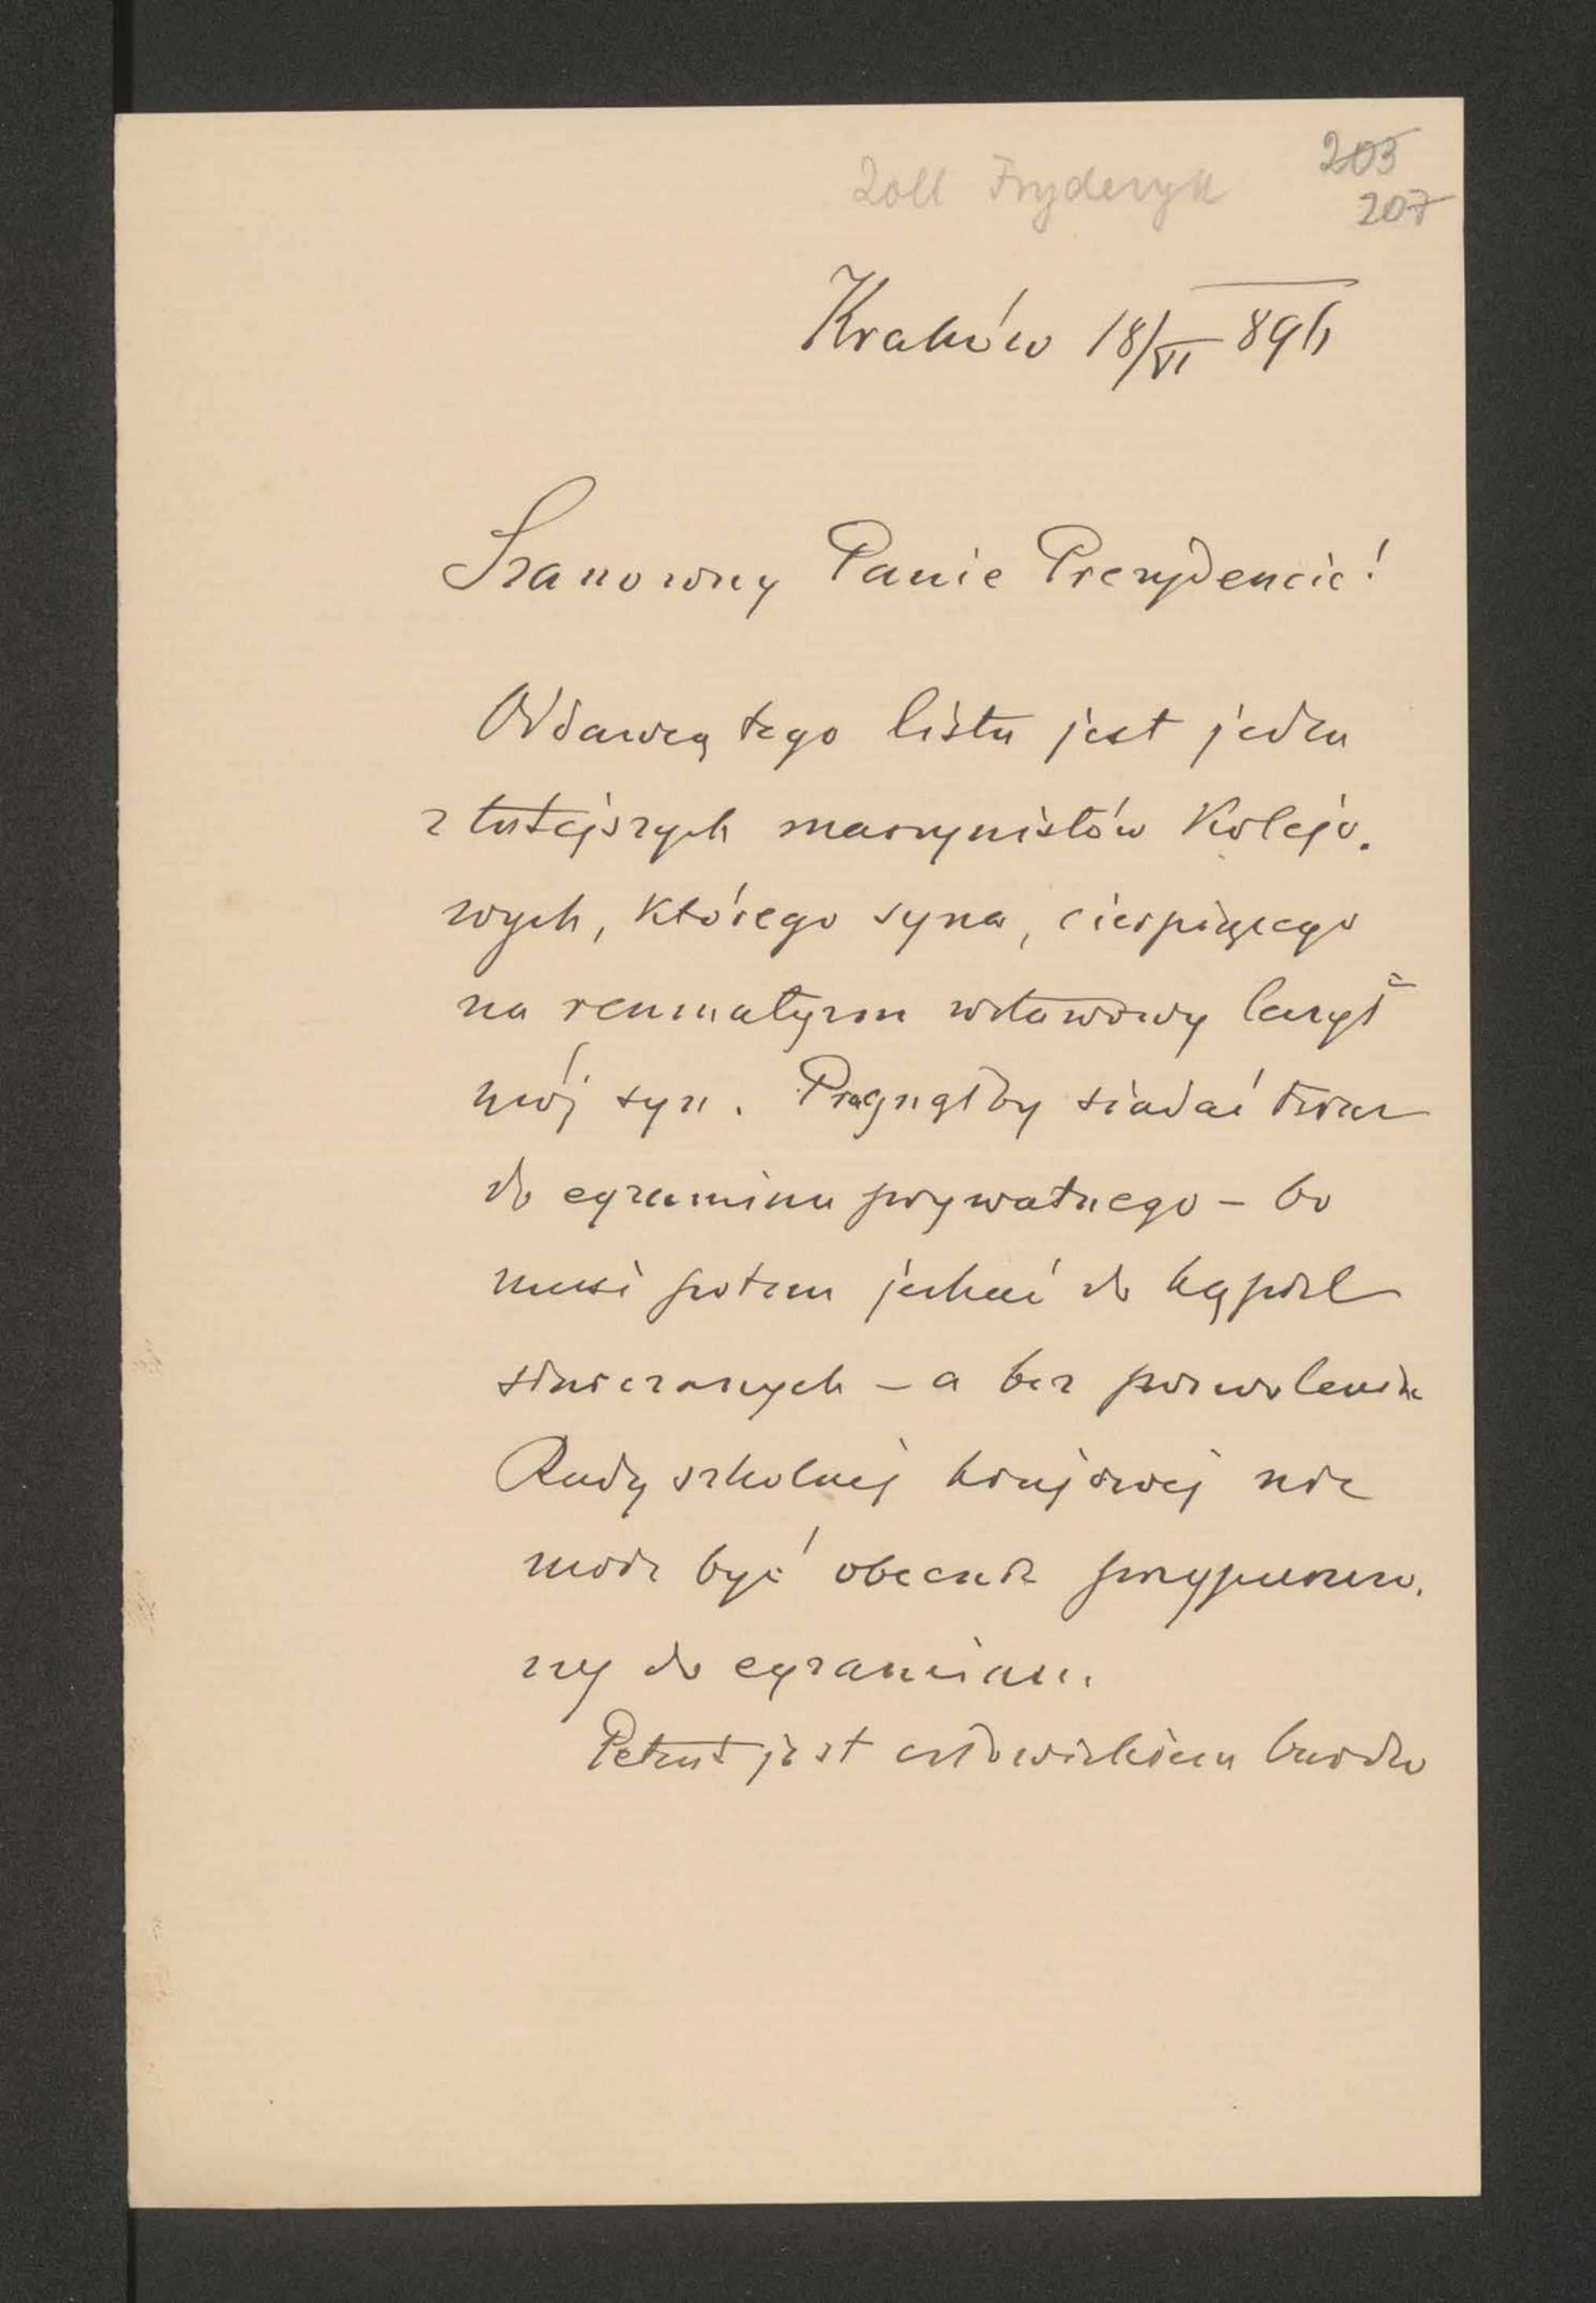 Zoll Fryderyk
203
207
Kraków 18/VI 896
Szanowny Panie Prezydencie!
Oddawcą tego listu jest jeden
z tutejszych maszynistów kolejo-
wych, którego syna, cierpiącego
na reumatyzm stawowy leczył
mój syn. Pragnąłby siadać teraz
do egzaminu prywatnego – bo
musi potem jechać do kąpiel
siarczanych – a bez pozwolenia
Rady szkolnej krajowej nie
może być obecnie przypuszczo-
ny do egzaminu.
jest człowiekiem bardzo